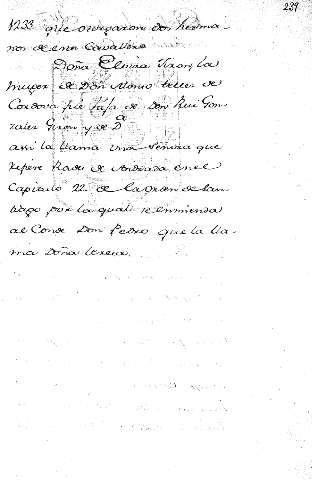 239
1233 que otorgaron dos herma-
nos de este Cavallero
Doña Elvira Giron, la
muger de Don Alonso tellez de
Cordova fue hija de Don Rui Gon-
zalez Giron y de D.ª
assi la llama una Señora que
refiere Rades de Andrada en el
Capitulo 22 de la orden de San-
tiago por la qual se enmienda
al Conde Don Pedro que la lla-
ma Doña teresa.